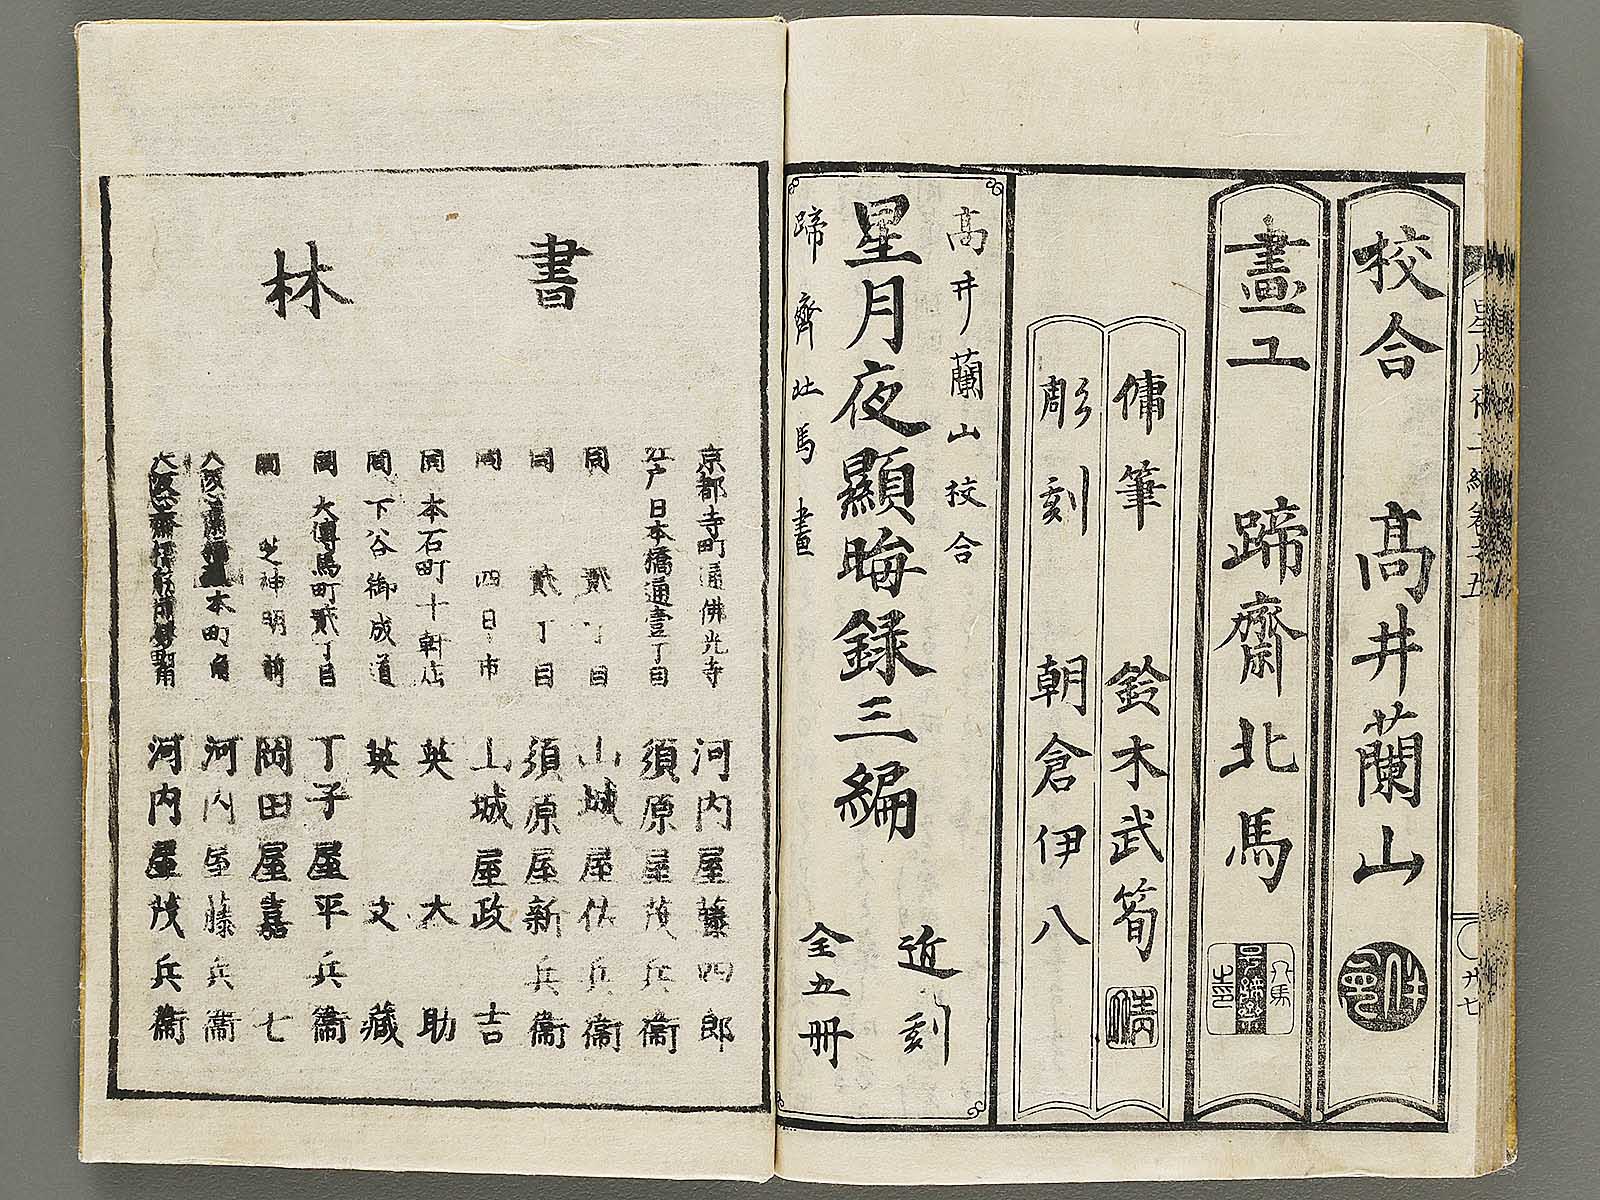 校合 高井蘭山
畫工 蹄齋北馬
傭筆 鈴木武筍
彫刻 朝倉伊八
高井蘭山校合
星月夜顯晦録三編
近刻
全五冊
蹄齊北馬畫
書林
京都寺町通佛光寺 河内屋藤四郎
江戸日本橋通壹丁目 須原屋茂兵衞
同 貳丁目 山城屋佐兵衞
同 貳丁目 須原屋新兵衞
同 四日市 山城屋政吉
同 本石町十軒店 英大助
同 下谷御成道 英文藏
同 大傳馬町貳丁目 丁子屋平兵衞
同 芝神明前 岡田屋嘉七
大阪心齋橋 本町角 河内屋藤兵衞
大阪心齋橋 河内屋茂兵衞